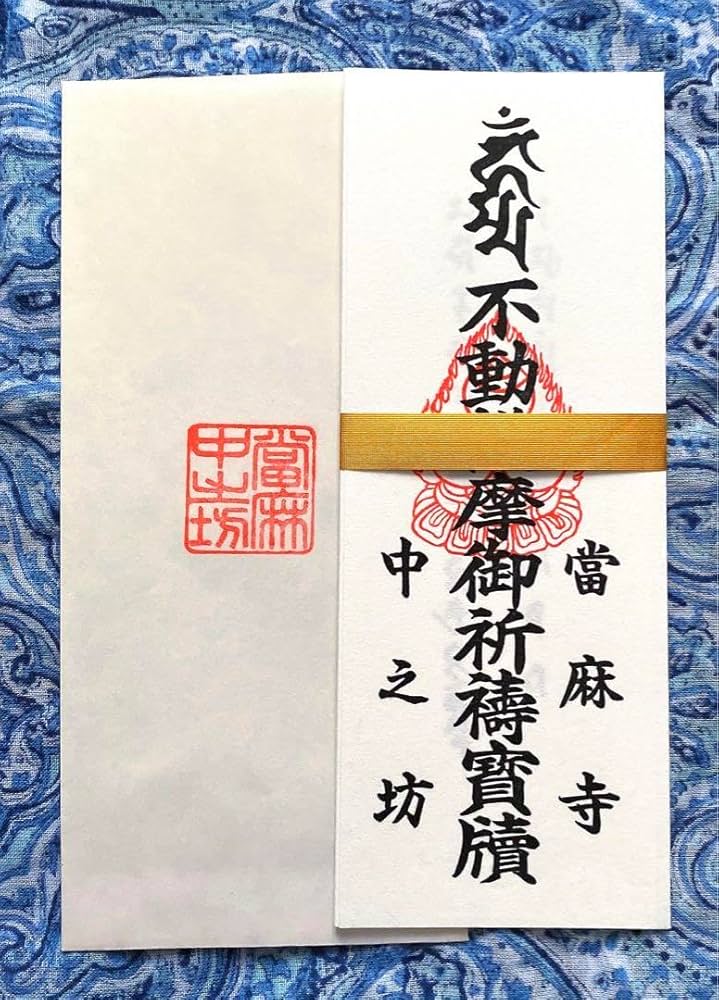 當麻寺
不動摩御祈禱寶牘
中之坊
當麻
中之坊